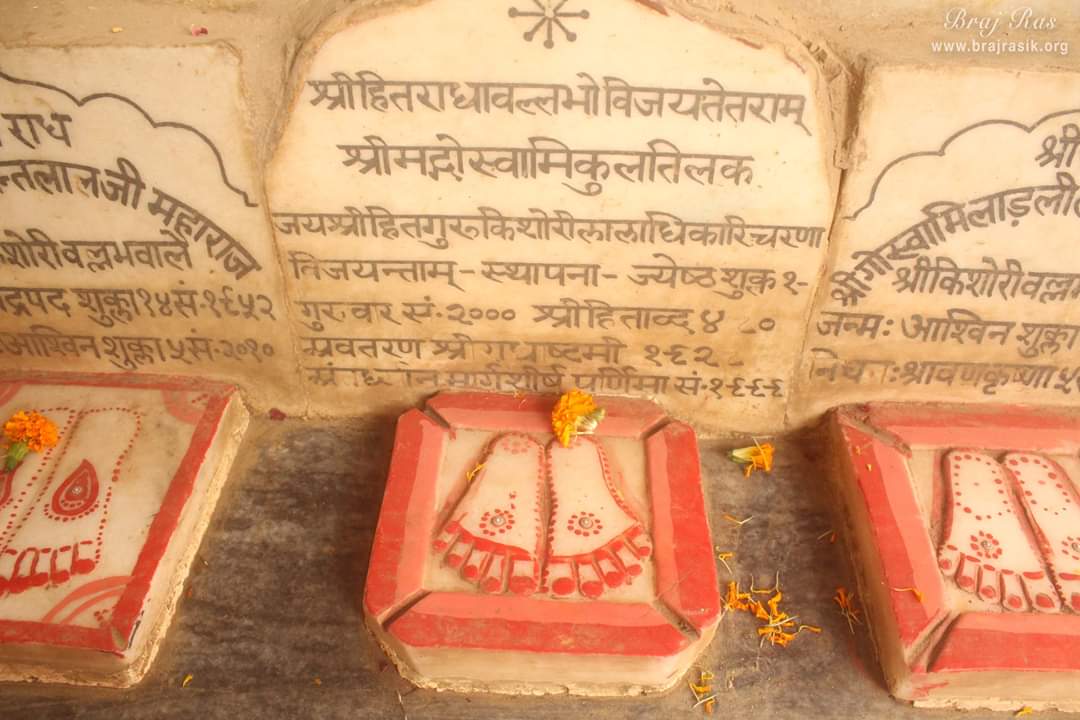 Braj Ras
www.brajrasik.org
राध
न्तलालजी महाराज
शोरीवल्लभवाले
द्रपद शुक्ला १४ सं॰ १९५२
आश्विन शुक्ला ५ सं॰ २०१०
श्रीहितराधावल्लभोविजयतेतराम्
श्रीमद्गोस्वामिकुलतिलक
जयश्रीहितगुरुकिशोरीलालाधिकारिचरणा
विजयन्ताम् - स्थापना - ज्येष्ठ शुक्ल १-
गुरुवार सं॰ २००० श्रीहिताब्द ४
मार्गशीर्ष पूर्णिमा सं॰ १९९९
श्री
श्रीगोस्वामिलाड़ली
श्रीकिशोरीवल्लभ
जन्म : आश्विन शुक्ला
श्रावणकृष्णा